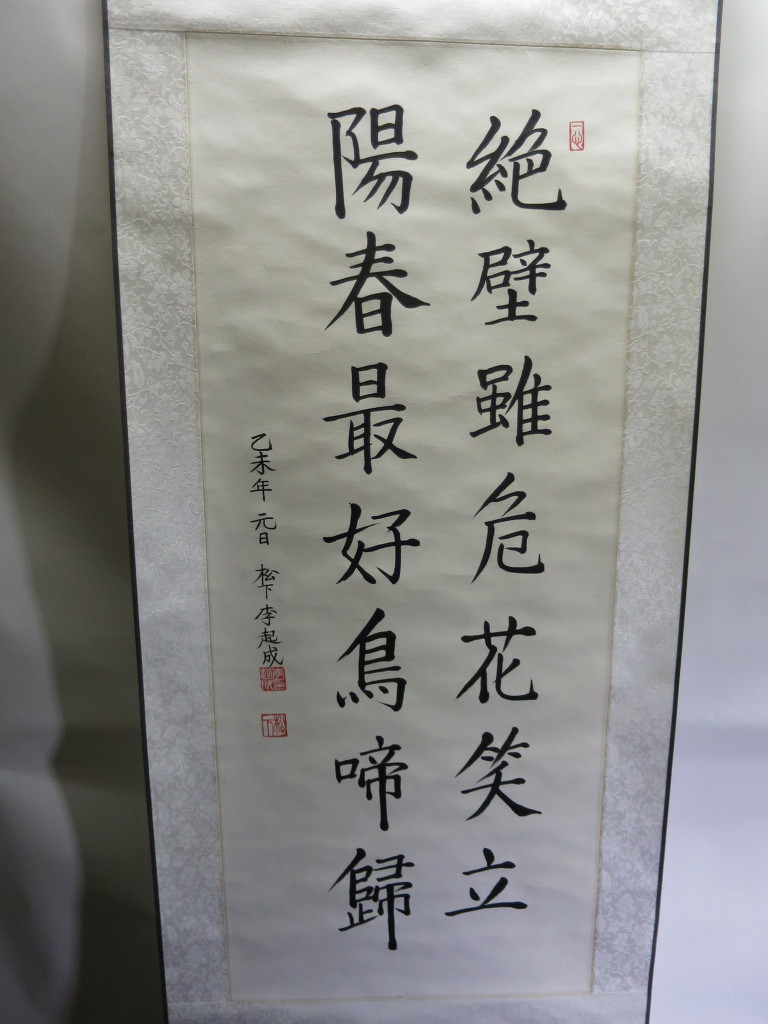 絶壁雖危花笑立
陽春最好鳥啼歸
乙未年 元日 松下李起成
松下